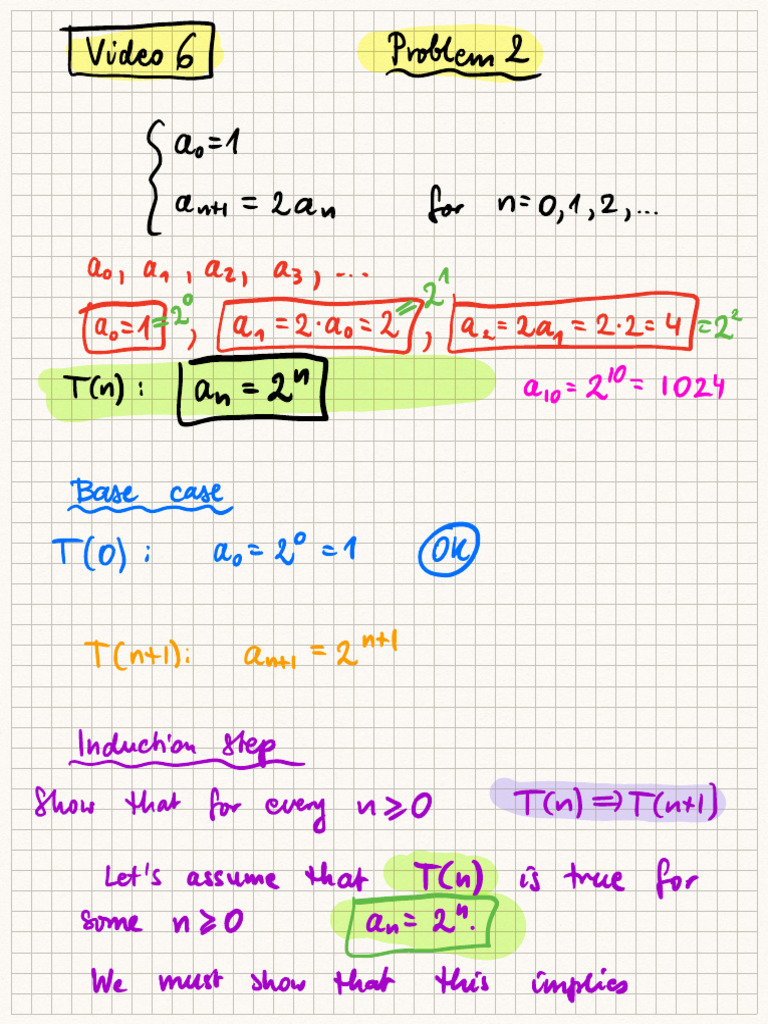 Video 6 Problem 2
a₀=1
aₙ₊₁ = 2aₙ for n=0,1,2,...
a₀, a₁, a₂, a₃, ...
a₀=1=2⁰, a₁=2·a₀=2=2¹, a₂=2a₁=2·2=4=2²
T(n): aₙ=2ⁿ a₁₀=2¹⁰=1024
Base case
T(0): a₀=2⁰=1 OK
T(n+1): aₙ₊₁=2ⁿ⁺¹
Induction step
Show that for every n⩾0 T(n)⇒T(n+1)
Let's assume that T(n) is true for
some n⩾0 aₙ=2ⁿ.
We must show that this implies